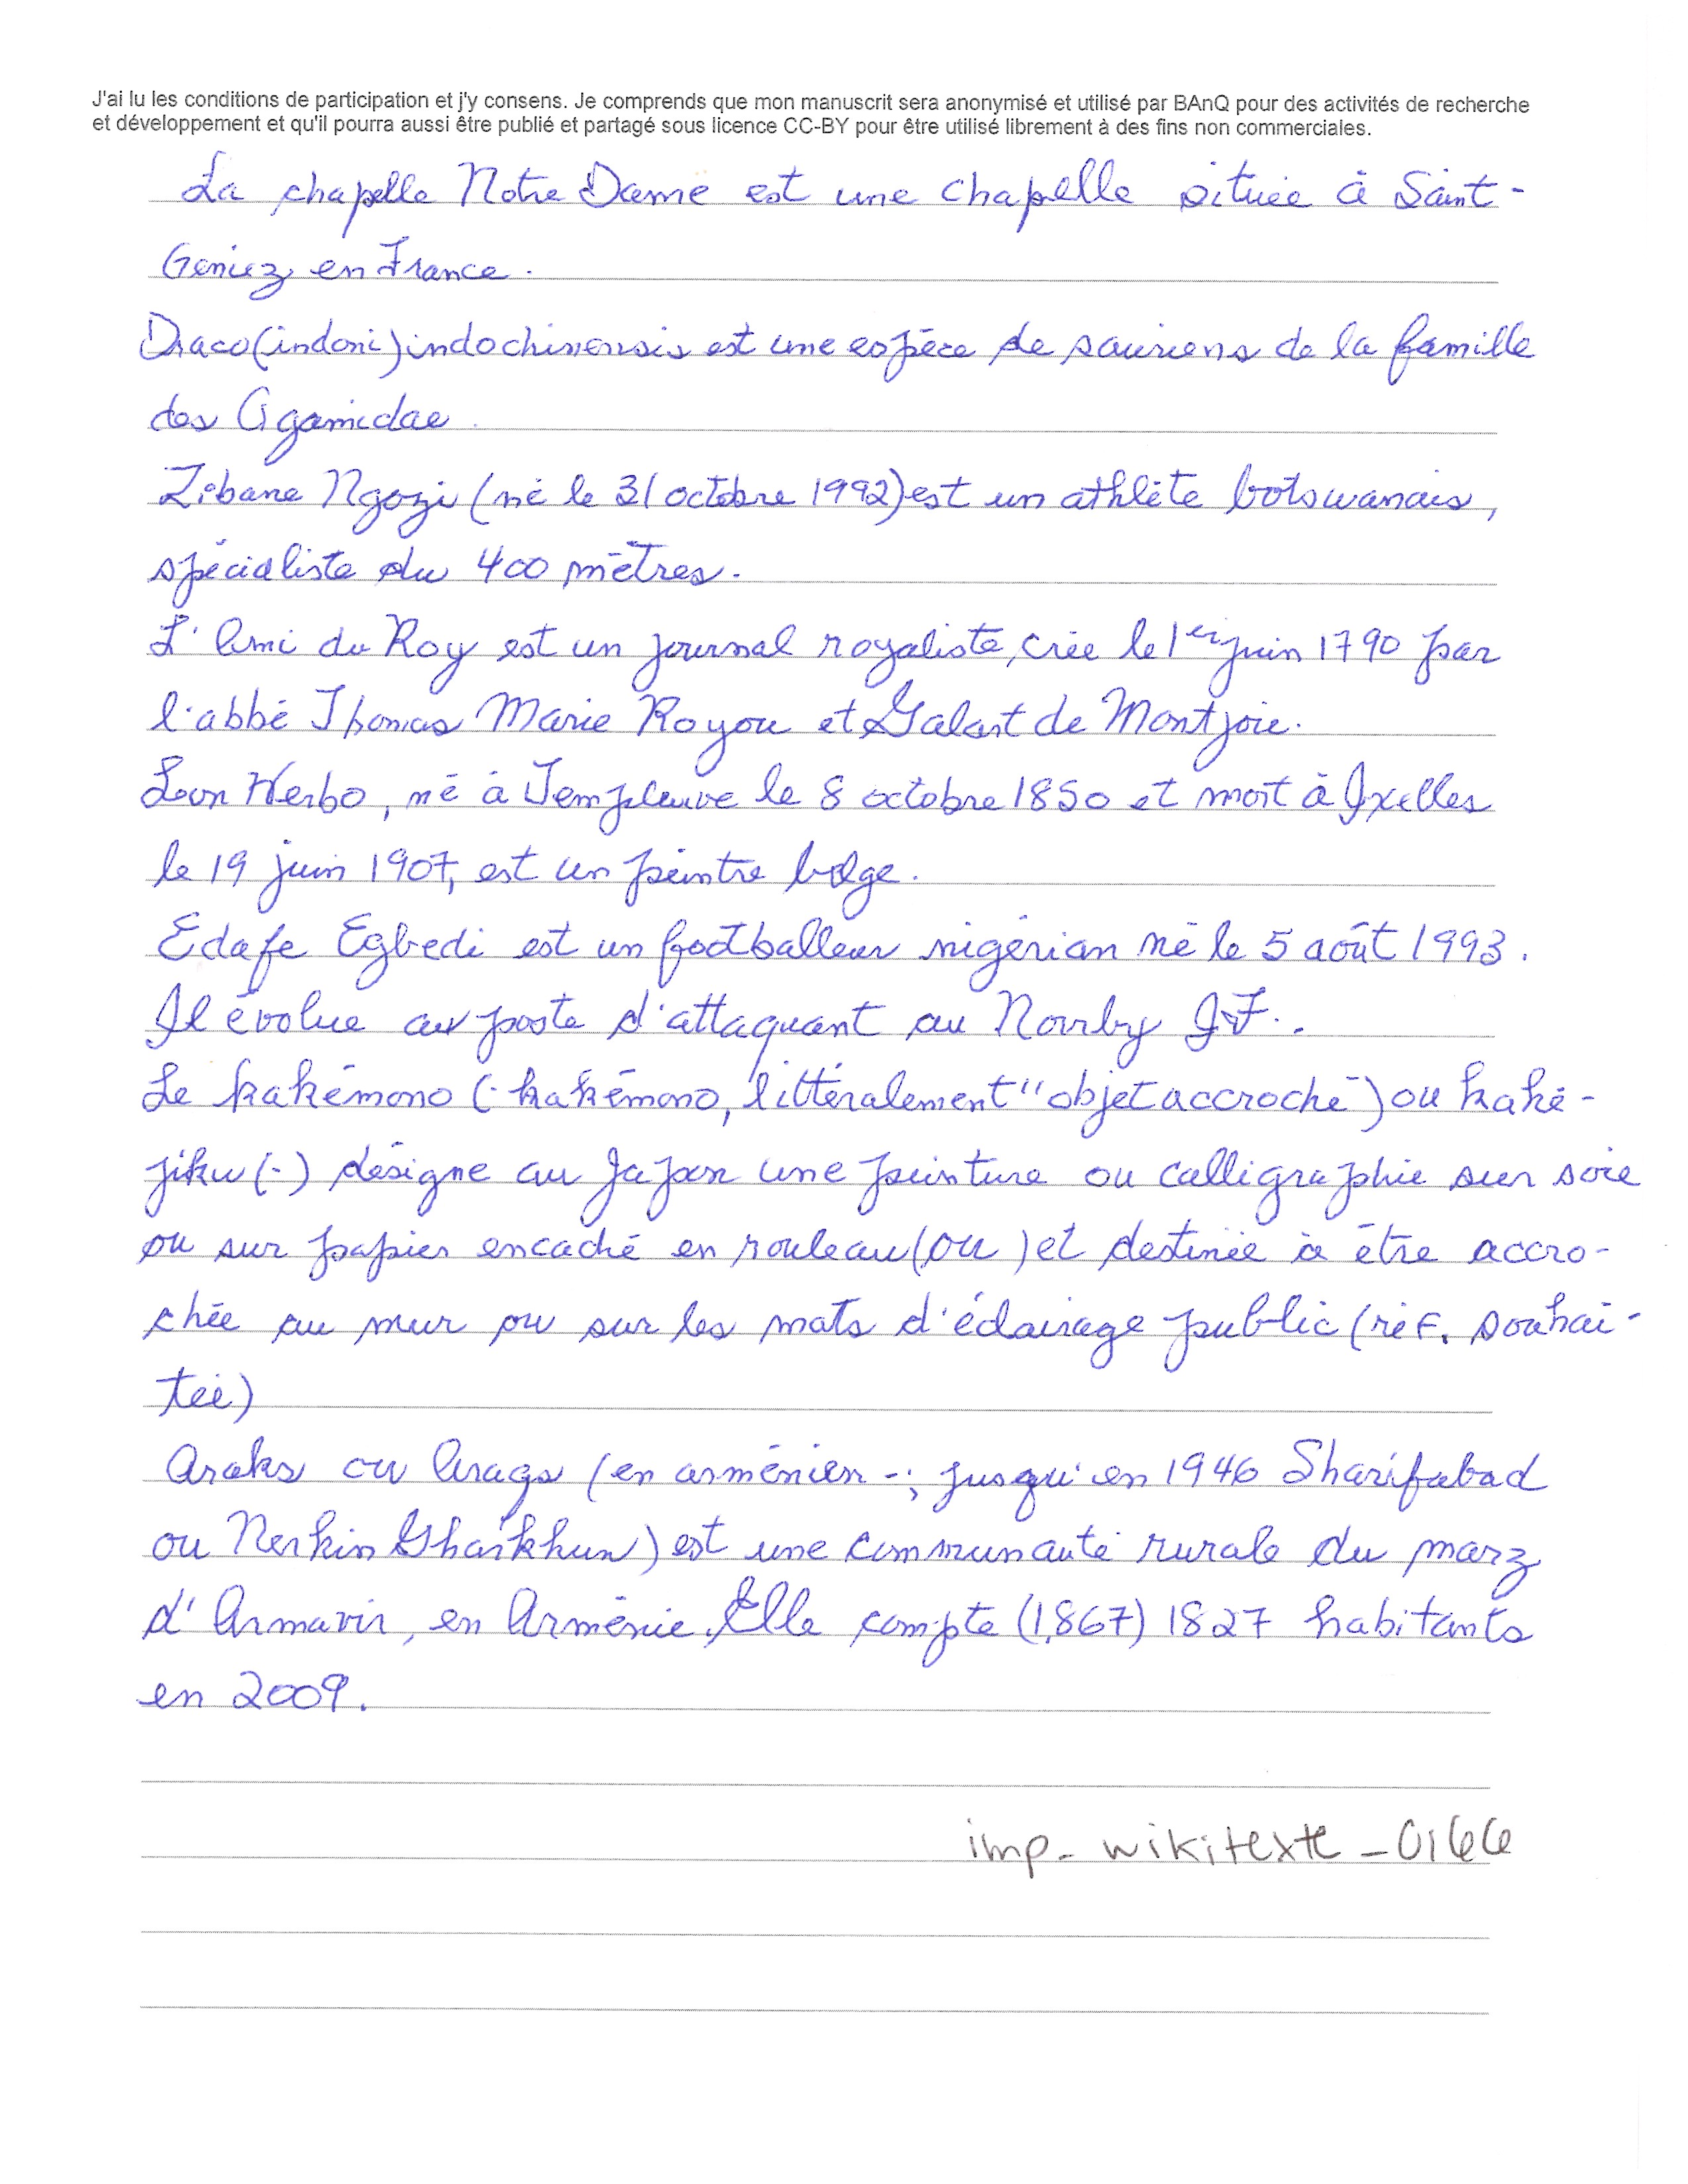 J'ai lu les conditions de participation et j'y consens. Je comprends que mon manuscrit sera anonymisé et utilisé par BAnQ pour des activités de recherche
et développement et qu'il pourra aussi être publié et partagé sous licence CC-BY pour être utilisé librement à des fins non commerciales.
La chapelle Notre Dame est une chapelle située à Saint-
Geniez en France.
Draco (indoni) indochinensis est une espèce de sauriens de la famille
des Agamidae.
Zibane Ngozi (né le 31 octobre 1992) est un athlète botswanais,
spécialiste du 400 mètres.
L'Ami du Roy est un journal royaliste, crée le 1er juin 1790 par
l'abbé Thomas Marie Royou et Galart de Montjoie.
Léon Herbo, né à Templeuve le 8 octobre 1850 et mort à Ixelles
le 19 juin 1907, est un peintre belge.
Edafe Egbedi est un footballeur nigérian né le 5 août 1993.
Il évolue au poste d'attaquant au Norrby I.F..
Le kakémono (-kakémono, littéralement "objet accroché") ou kaké-
jiku (-) désigne au Japon une peinture ou calligraphie sur soie
ou sur papier encadré en rouleau (ou ) et destinée à être accro-
chée au mur ou sur les mats d'éclairage public (réf. souhai-
tée)
Araks ou Arags (en arménien -; jusqu'en 1946 Sharifabad
ou Nerkin Gharkhun) est une communauté rurale du marz
d'Armavir, en Arménie. Elle compte (1,867) 1827 habitants
en 2009.
imp_wikitexte_0166